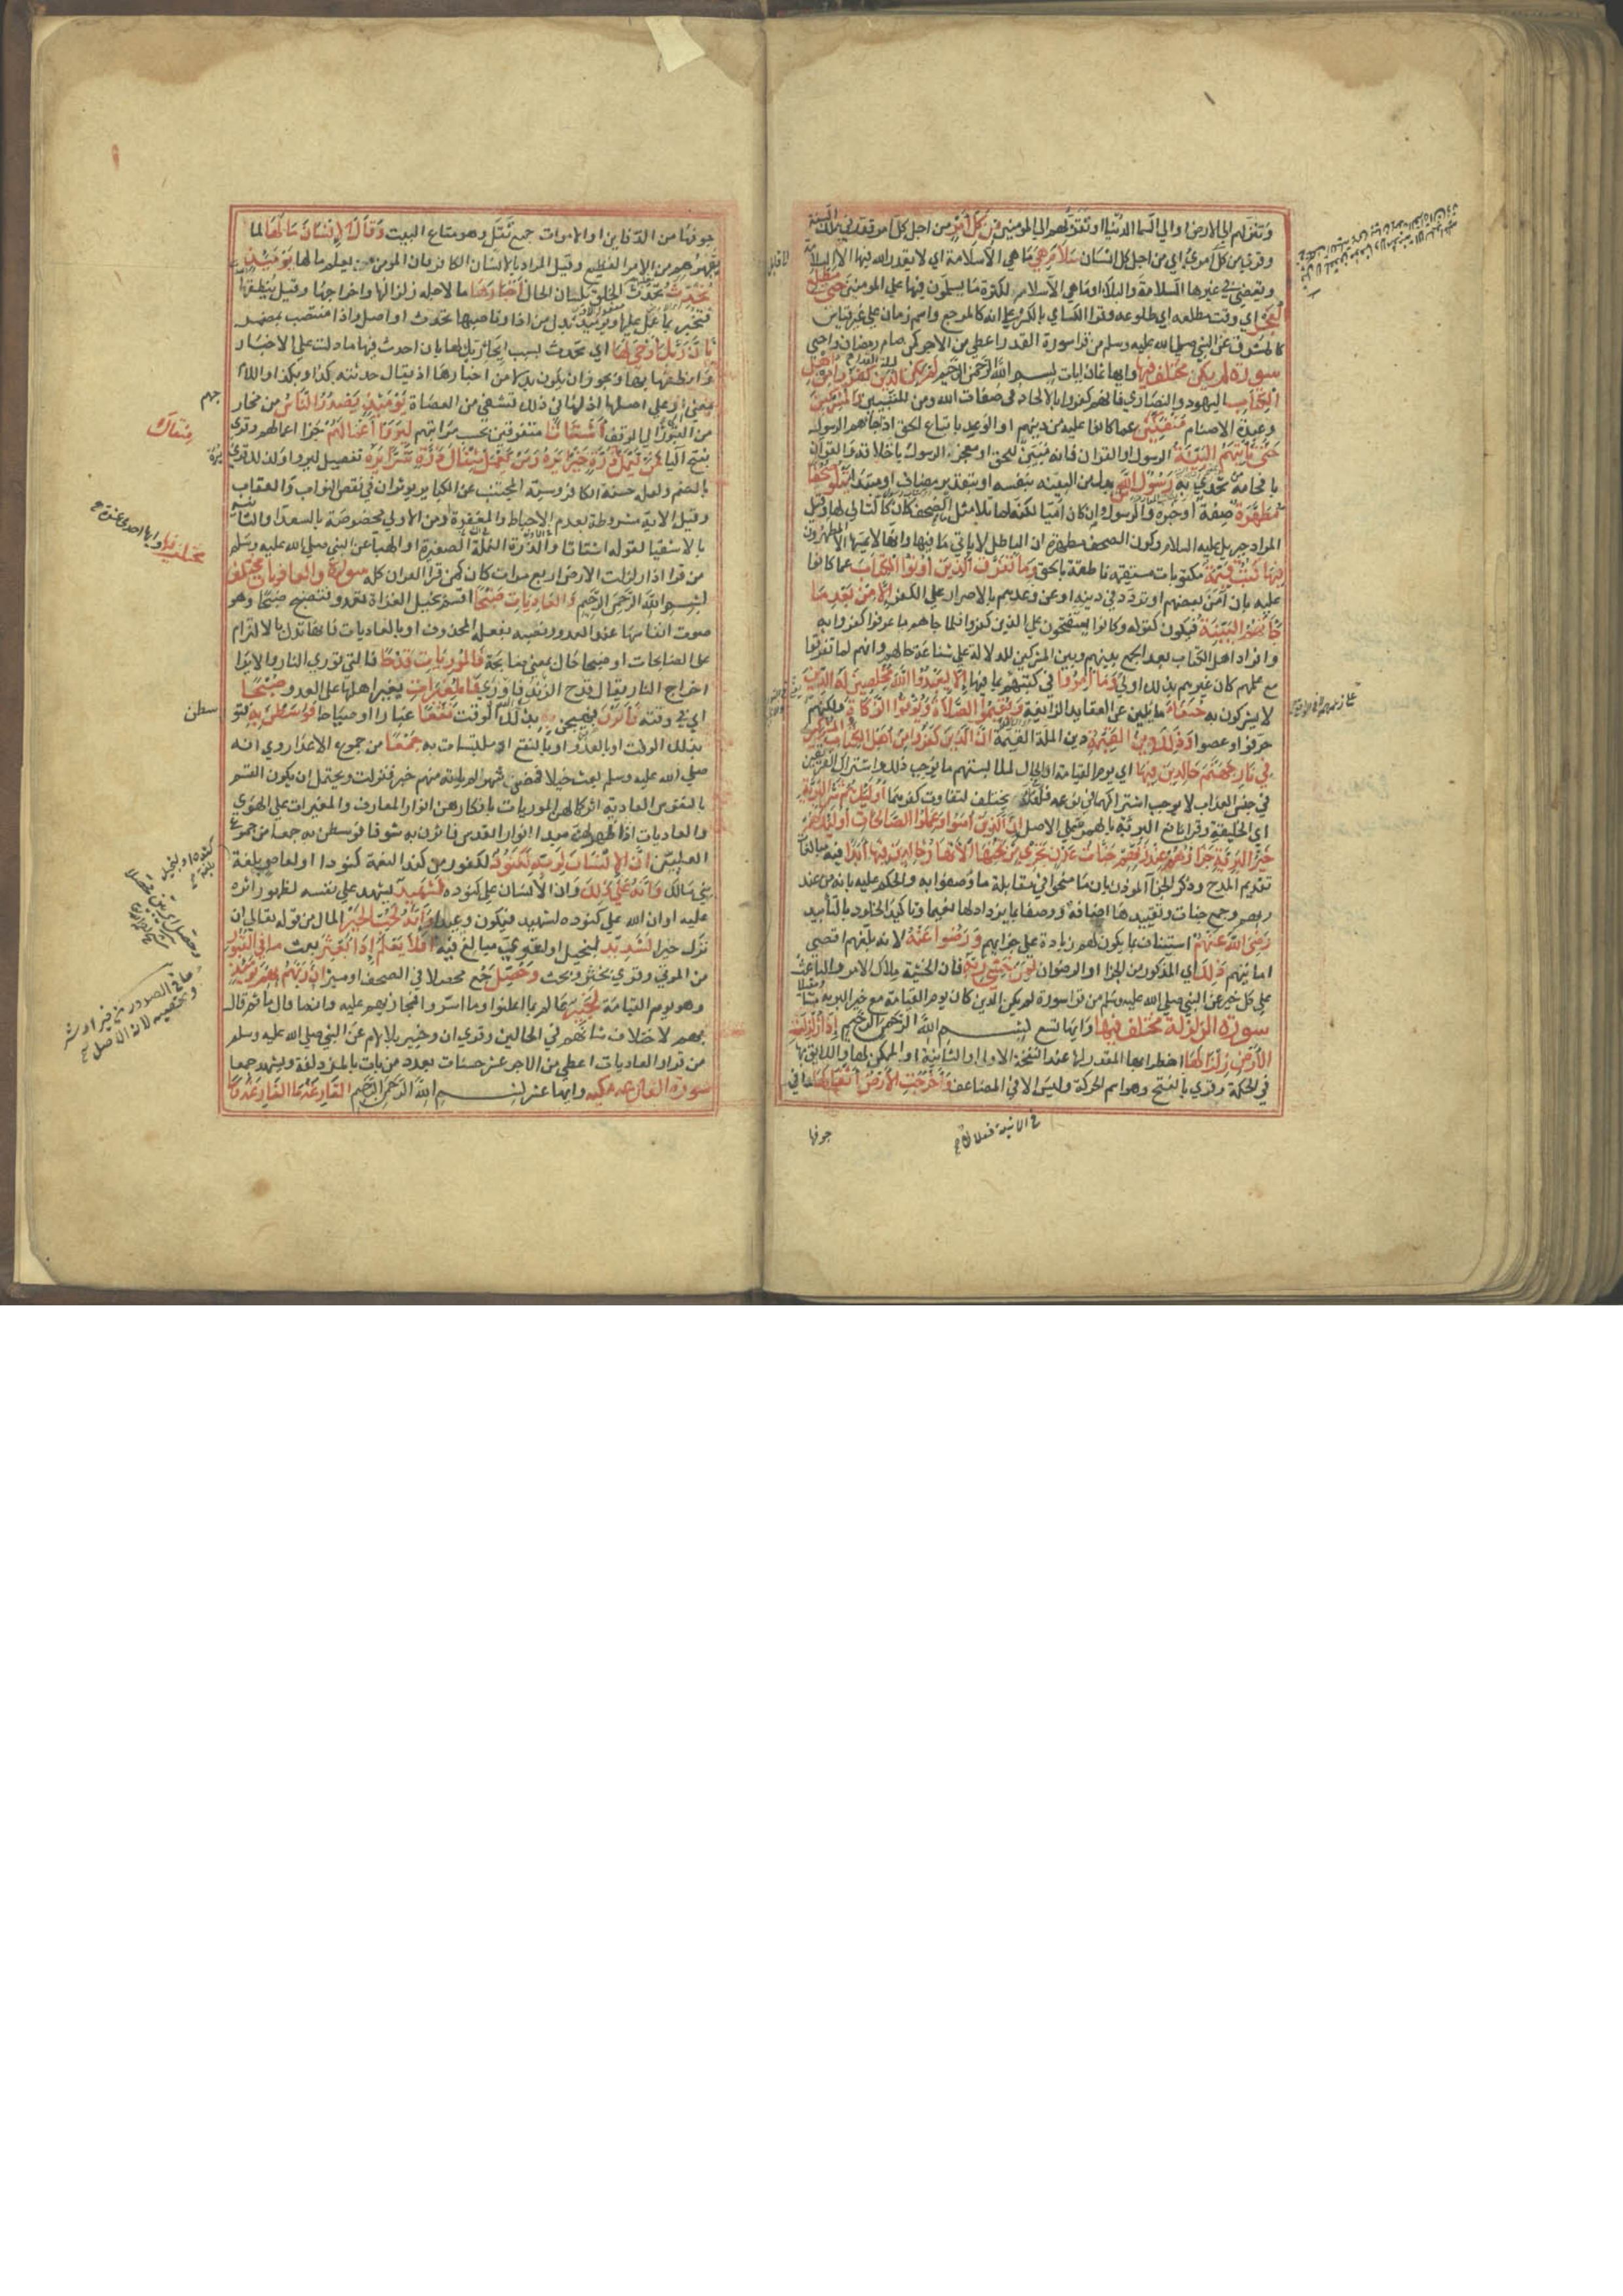 وتنزلهم الي الارض او الي السما الدنيا او تقربهم الي المومنين من كل امر من اجل كل امر قدر في تلك السنة
وقري من كل امرئ اي من اجل كل انسان سلام هي ما هي الا سلامة اي لا يقدر الله فيها الا السلامة
ويقضي في غيرها السلامة والبلا او ما هي الا سلام لكثرة ما يسلمون فيها علي المومنين حتي مطلع
الفجر اي وقت مطلعه اي طلوعه وقرا الكساي بالكسر علي انه كالمرجع واسم زمان علي غير قياس
كالمشرق عن النبي صلي الله عليه وسلم من قرا سورة القدر اعطي من الاجر كمن صام رمضان واحيي
ليلة القدر
سورة لم يكن مختلف فيها وايها ثمان ايات بسم الله الرحمن الرحيم لم يكن الذين كفروا من اهل
الكتاب اليهود والنصاري فانهم كفروا بالالحاد في صفات الله ومن للتبيين والمشركين
وعبدة الاصنام منفكين عما كانوا عليه من دينهم او الوعد باتباع الحق اذ جاهم الرسول
حتي تاتيهم البينة الرسول او القران فانه مبين للحق او معجز الرسول باخلاقه والقران
بافحامه من تحدي به رسول الله بدل من البينة بنفسه او بتقدير مضاف او مبتدا يتلو صحفا
مطهرة صفته او خبره والرسول وان كان اميا لكنه لما تلا مثل ما في الصحف كان كالتالي لها وقيل
المراد جبريل عليه السلام وكون الصحف مطهرة ان الباطل لا ياتي ما فيها وانها لا يمسها الا المطهرون
فيها كتب قيمة مكتوبات مستقيمة ناطقة بالحق وما تفرق الذين اوتوا الكتاب عما كانوا
عليه بان امن بعضهم او تردد في دينه او عن وعدهم بالاصرار علي الكفر الا من بعد ما
جاتهم البينة فيكون كقوله وكانوا يستفتحون علي الذين كفروا فلما جاهم ما عرفوا كفروا به
وافراد اهل الكتاب بعد الجمع بينهم وبين المشركين للدلالة علي شناعة حالهم وانهم لما تفرقوا
مع علمهم كان غيرهم بذلك اولي وما امروا في كتبهم بما فيها الا ليعبدوا الله مخلصين له الدين
لا يشركون به حنفاء مايلين عن العقايد الزايغة ويقيموا الصلاة ويوتوا الزكاة ولكنهم
حرفوا وعصوا وذلك دين القيمة دين الملة القيمة ان الذين كفروا من اهل الكتاب والمشركين
في نار جهنم خالدين فيها اي يوم القيامة او الحال لملابستهم ما يوجب ذلك واشتراك الفريقين
في جنس العذاب لا يوجب اشتراكهما في نوعه فلعله يختلف لتفاوت كفرهما اوليك هم شر البرية
اي الخليقة وقرا نافع البريئة بالهمز علي الاصل ان الذين امنوا وعملوا الصالحات اوليك هم
خير البرية جزاؤهم عند ربهم جنات عدن تجري من تحتها الانهار خالدين فيها ابدا فيه مبالغات
تقديم المدح وذكر الجزا الموذن بان ما منحوا في مقابلة ما وصفوا به والحكم عليه بانه من عند
ربهم وجمع جنات وتقييدها اضافة ووصفا بما يزداد لها نعيما وتاكيد الخلود بالتابيد
رضي الله عنهم استيناف بما يكون لهم زيادة علي جزايهم ورضوا عنه لانه بلغهم اقصي
امانيهم ذلك اي المذكور من الجزا او الرضوان لمن خشي ربه فان الخشية ملاك الامر والباعث
علي كل خير عن النبي صلي الله عليه وسلم من قرا سورة لم يكن الذين كان يوم القيامة مع خير البرية مبيتا ومقيلا
سورة الزلزلة مختلف فيها وايها تسع بسم الله الرحمن الرحيم اذا زلزلت
الارض زلزالها اضطرابها المقدر لها عند النفخة الاولي او الثانية او الممكن لها واللايق بها
في الحكمة وقري بالفتح وهو اسم الحركة وليس لا في المضاعف واخرجت الارض اثقالها ما في
جوفها
جوفها من الدفاين او الاموات جمع ثقل وهو متاع البيت وقال الانسان ما لها لما
يبهرهم من الامر الفظيع وقيل المراد بالانسان الكافر فان المومن يعلم ما لها يوميذ
تحدث تحدث الخلق بلسان الحال اخبارها ما لاجله زلزالها واخراجها وقيل ينطقها
فتخبر بما عمل عليها ويوميذ بدل من اذا وناصبها تحدث او اصل واذا منتصب بمضمر
بان ربك اوحي لها اي تحدث بسبب ايحا ربك لها بان احدث فيها ما دلت علي الاخبار
او انطقها بها ويجوز ان يكون بدلا من اخبارها اذ يقال حدثته كذا وبكذا واللام
بمعني الي او علي اصلها اذ لها في ذلك تشفي من العصاة يوميذ يصدر الناس من مخارجهم
من القبور الي الموقف اشتاتا متفرقين بحسب مراتبهم ليروا اعمالهم جزا اعمالهم وقري
بفتح اليا فمن يعمل مثقال ذرة خيرا يره ومن يعمل مثقال ذرة شرا يره تفصيل ليروا ولذلك قري يره
بالضم ولعل حسنة الكافر وسيئة المجتنب عن الكباير يوثران في نقص الثواب والعقاب
وقيل الاية مشروطة بعدم الاحباط والمغفرة او من الاولي مخصوصة بالسعدا والثانية
بالاشقيا لقوله اشتاتا والذرة النملة الصغيرة او الهبا عن النبي صلي الله عليه وسلم
من قرا اذا زلزلت الارض اربع مرات كان كمن قرا القران كله سورة والعاديات مختلف
فيها وايها احدي عشرة
بسم الله الرحمن الرحيم والعاديات ضبحا اقسم بخيل الغزاة تعدو فتضبح ضبحا وهو
صوت انفاسها عند العدو ونصبه بفعله المحذوف او بالعاديات فانها تدل بالالتزام
علي الضابحات او ضبحا حال بمعني ضابحة فالموريات قدحا فالتي توري النار والايرا
اخراج النار يقال قدح الزند فاوري فالمغيرات يغير اهلها علي العدو صبحا
اي في وقته فاثرن فهيجن به بذلك الوقت نقعا غبارا او صياحا فوسطن به فتوسطن
بذلك الوقت او بالعدو او بالنقع اي ملتبسات به جمعا من جموع الاعدا روي انه
صلي الله عليه وسلم بعث خيلا فمضي شهر لم ياته منهم خبر فنزلت ويحتمل ان يكون القسم
بالنفوس العادية اثر كمالهن الموريات بافكارهن انوار المعارف والمغيرات علي الهوي
والعاديات اذا ظهر لهن مبدا انوار القدس فاثرن به شوقا فوسطن به جمعا من جموع
العليين ان الانسان لربه لكنود لكفور من كند النعمة كنودا او لعاص بلغة
كندة او لبخيل بلغة
بني مالك وانه علي ذلك وان الانسان علي كنوده لشهيد يشهد علي نفسه لظهور اثره
عليه او ان الله علي كنوده لشهيد فيكون وعيدا وانه لحب الخير المال من قوله تعالي ان
ترك خيرا لشديد لبخيل او لقوي مبالغ فيه افلا يعلم اذا بعثر بعث ما في القبور
من الموتي وقري بحثر وبحث وحصل جمع محصلا في الصحف او ميز
ما في الصدور من خير او شر
وتخصيصه لانه الاصل
ان ربهم بهم يوميذ
وهو يوم القيامة لخبير عالم بما اعلنوا وما اسروا فمجازيهم عليه وانما قال ما ثم قال
بهم لاختلاف شانهم في الحالين وقري ان وخبير بلا لام عن النبي صلي الله عليه وسلم
من قرا والعاديات اعطي من الاجر عشر حسنات بعدد من بات بالمزدلفة وشهد جمعا
سورة القارعة مكية وايها عشر بسم الله الرحمن الرحيم القارعة ما القارعة وما